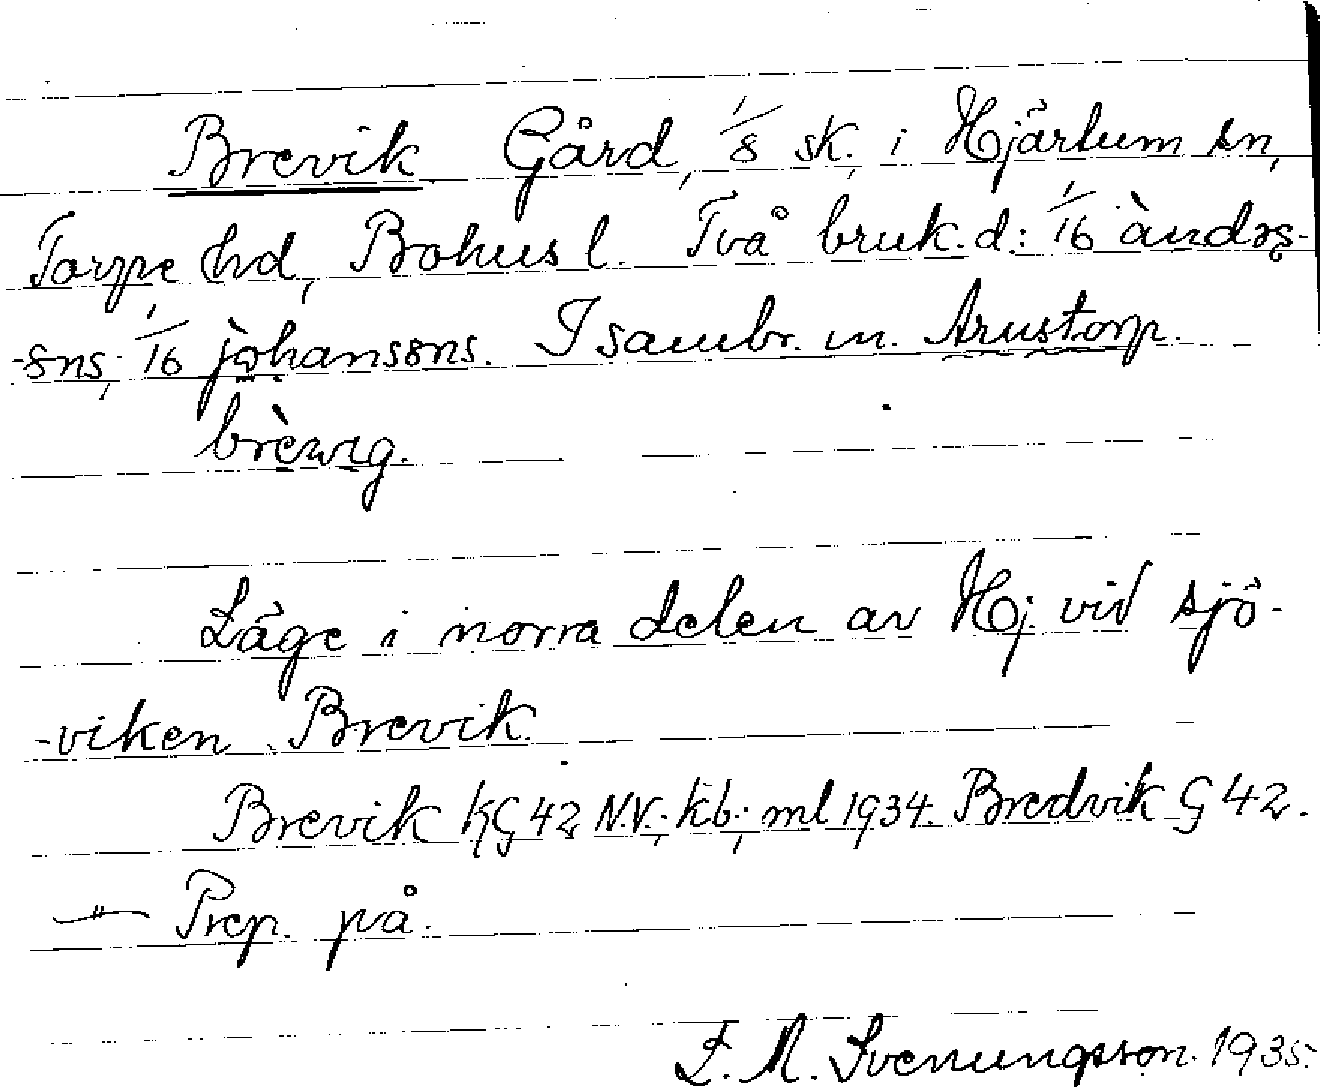 Brevik Gård, 1/8 sk. i Hjärtum sn,
Torpe hd, Bohus l. Två bruk.d.: 1/16 àndəṣ-
-sns, 1/16 jòhansəns. I sambr. m. Arustorp.
brèvıg.
Läge i norra delen av Hj. vid sjö-
-viken Brevik.
Brevik KG 42 N.V.; kb.; ml 1934. Bredvik G 42.
—"— Prep. på.
E. M. Svenungsson. 1935.